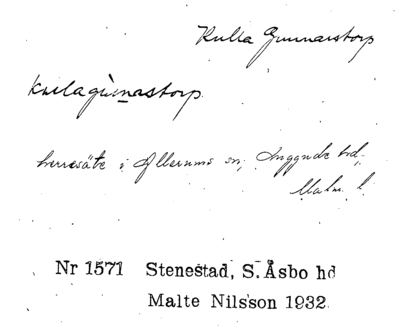 Kulla Gunnarstorp
kullagunnastorp.
herresäte i Allerums sn, Luggude hd,
Malm. l.
Nr 1571 Stenestad, S. Åsbo hd
Malte Nilsson 1932.